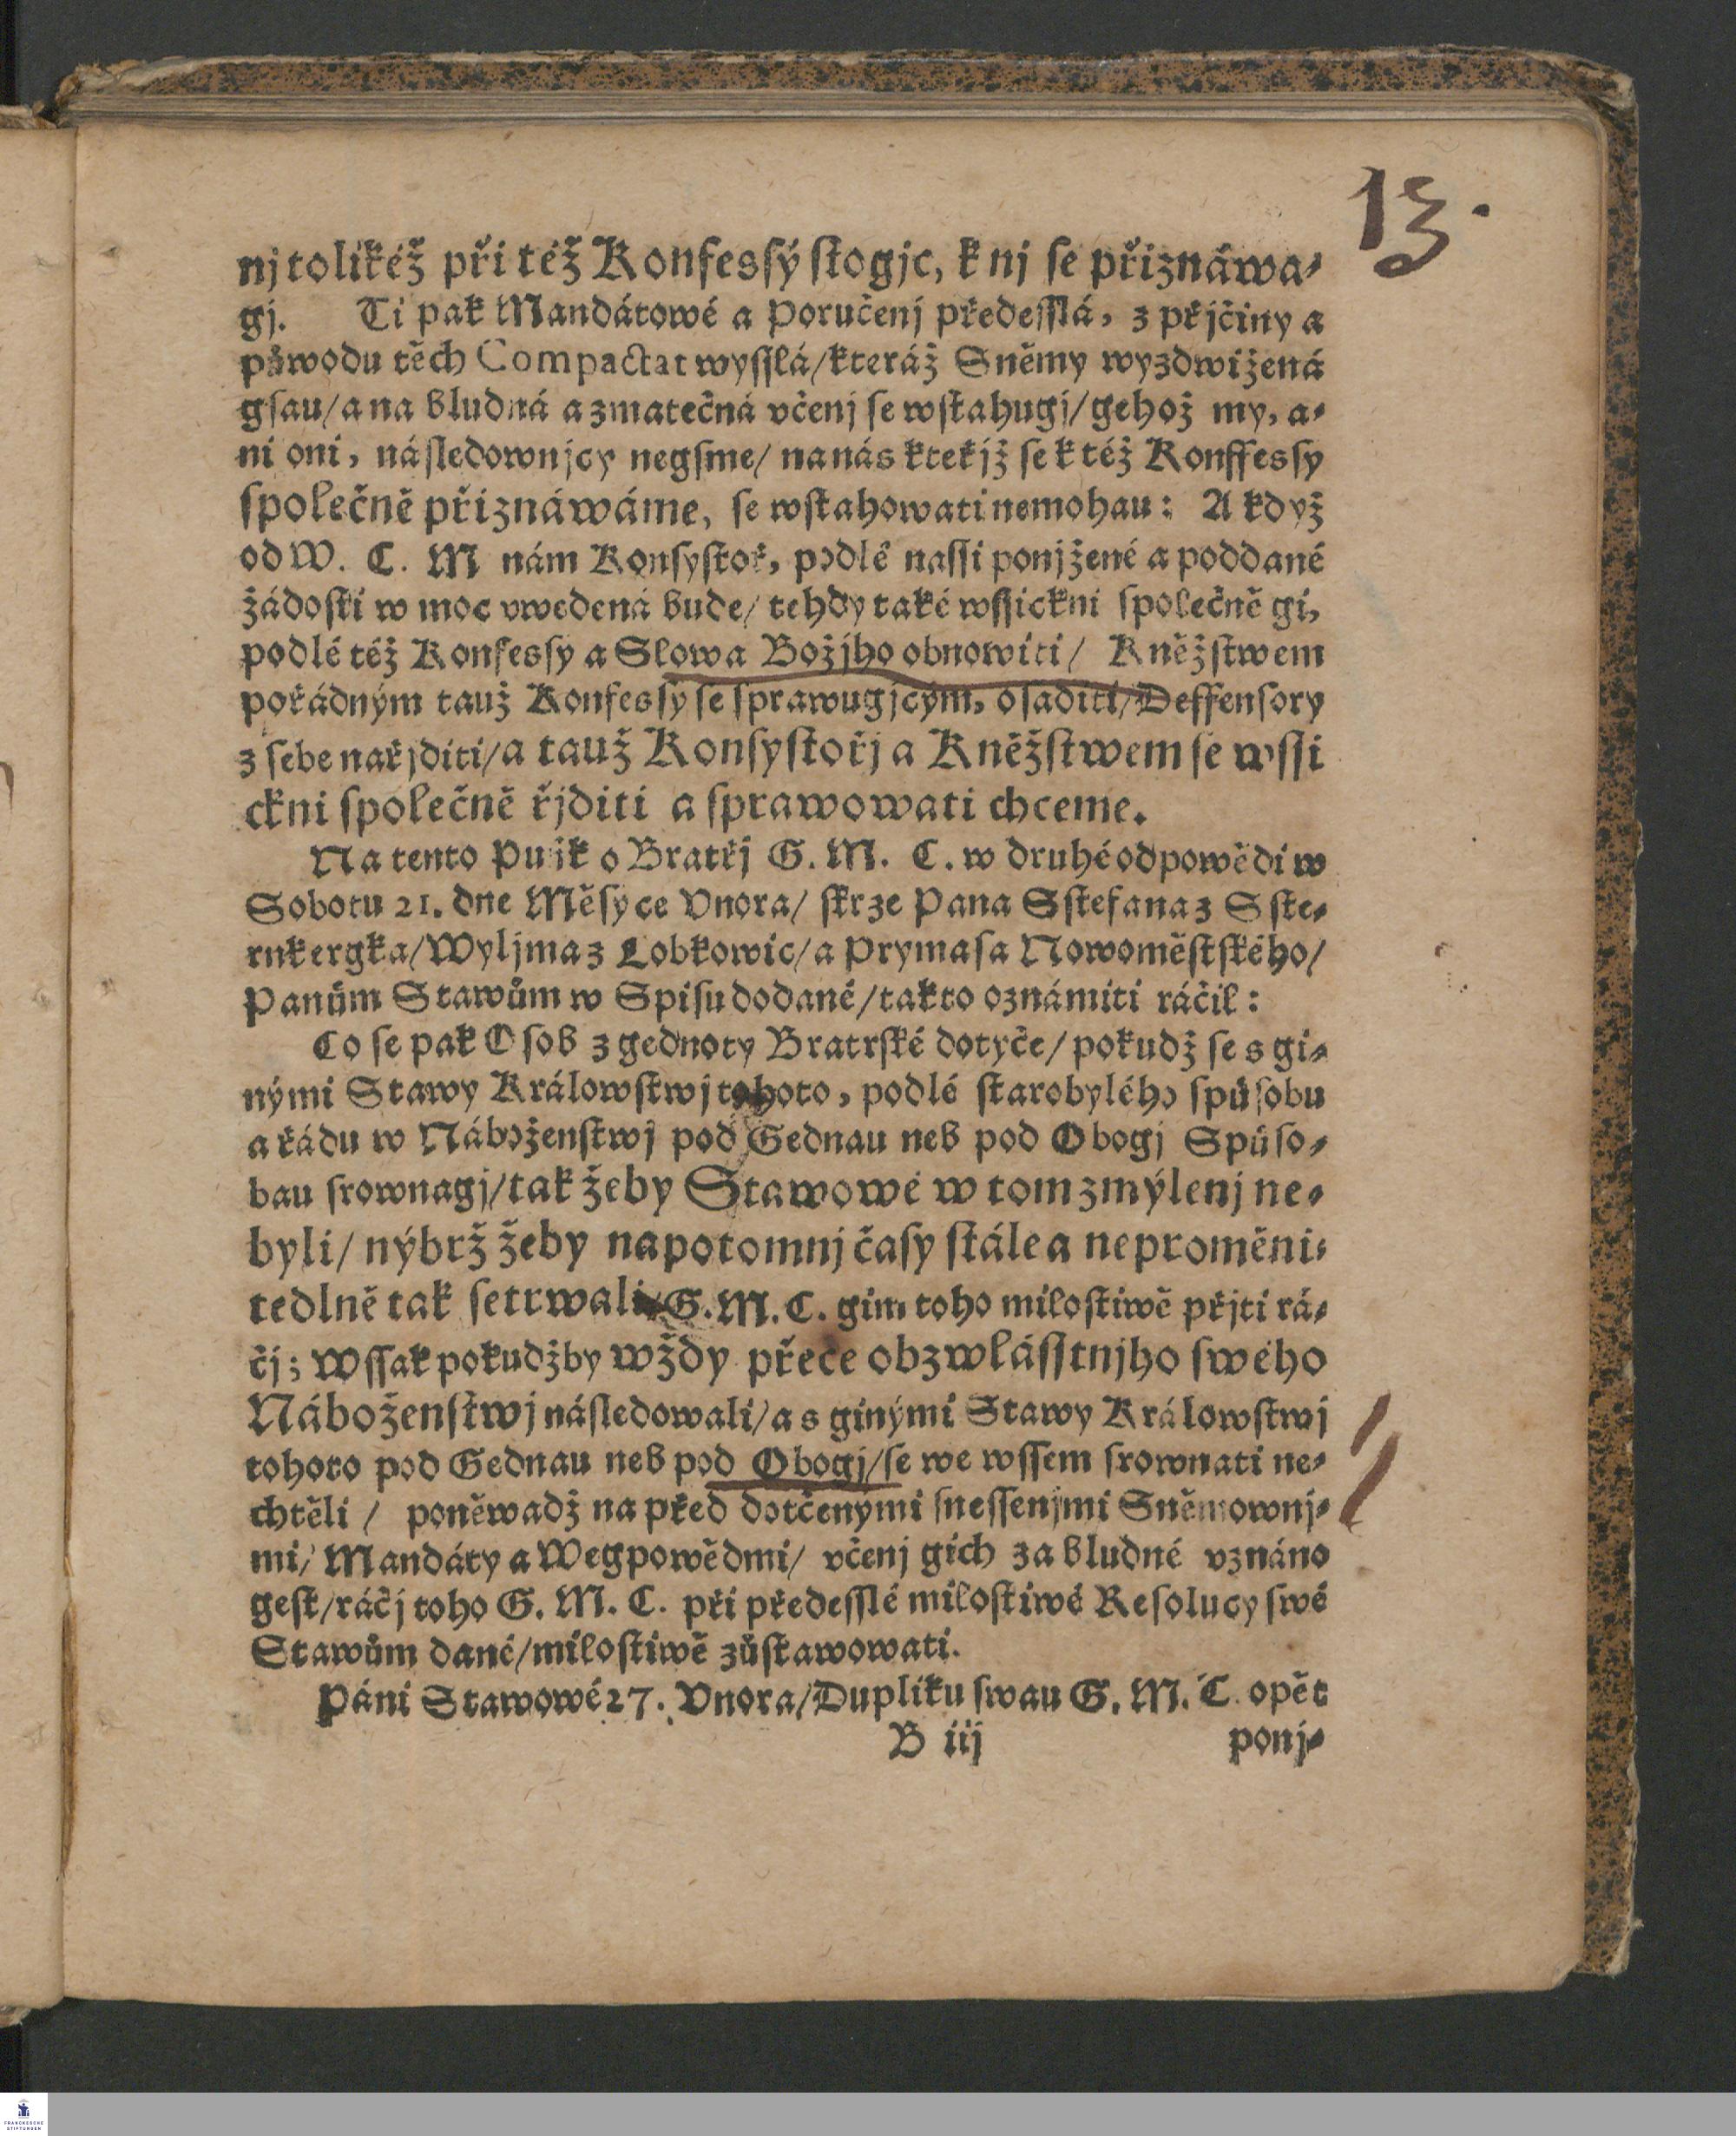 13.
nj tolikéž při též Konfessý stogjc, k nj se přiznáwa-
gj. Ti pak Mandátowé a Poručenj předesslá, z přjčiny a
půwodu těch Compactat wysslá/kteráž Sněmy wyzdwižená
gsau/a na bludná a zmatečná včenj se wstahugj/gehož my, a-
ni oni, následownjcy negsme/ na nás kteřjž se k též Konffessy
společně přiznáwáme, se wstahowati nemohau: A když
od W. C. M nám Konsystoř, podlé nassi ponjžené a poddané
žádosti w moc vwedená bude/ tehdy také wssickni společně gi,
podlé též Konfessy a Slowa Božjho obnowiti/ Kněžstwem
pořádným tauž Konfessý se sprawugjcým, osaditi/Deffensory
z sebe nařjditi/a tauž Konsystořj a Kněžstwem se wssi
ckni společně řjditi a sprawowati chceme.
Na tento Punk o Bratřj G. M. C. w druhé odpowědi w
Sobotu 21. dne Měsyce Vnora/ skrze Pana Sstefana z Sste-
rnkergka/Wyljma z Lobkowic/a Prymasa Nowoměstského/
Panům Stawům w Spisu dodané/takto oznámiti ráčil:
Co se pak Osob z gednoty Bratrské dotyče/ pokudž se s gi-
nými Stawy Králowstwj tohoto, podlé starobylého spůsobu
a řádu w Náboženstwj pod Gednau neb pod Obogj Spůso-
bau srownagj/tak žeby Stawowé w tom zmýlenj ne-
byli/ nýbrž žeby napotomnj časy stále a neproměni-
tedlně tak setrwali/G. M. C. gim toho milostiwě přjti rá-
čj; Wssak pokudžby wždy přece obzwlásstnjho swého
Náboženstwj následowali/a s ginými Stawy Králowstwj
tohoto pod Gednau neb pod Obogj/se we wssem srownati ne-
chtěli / poněwadž na před dotčenými snessenjmi Sněmownj-
mi/ Mandáty a Wegpowědmi/ včenj gich za bludné vznáno
gest/ráčj toho G. M. C. při předesslé milostiwé Resolucy swé
Stawům dané/milostiwě zůstawowati.
Páni Stawowé 27. Vnora/Dupliku swau G. M. C opět
B iij ponj-
FRANCKESCHE
STIFTUNGEN